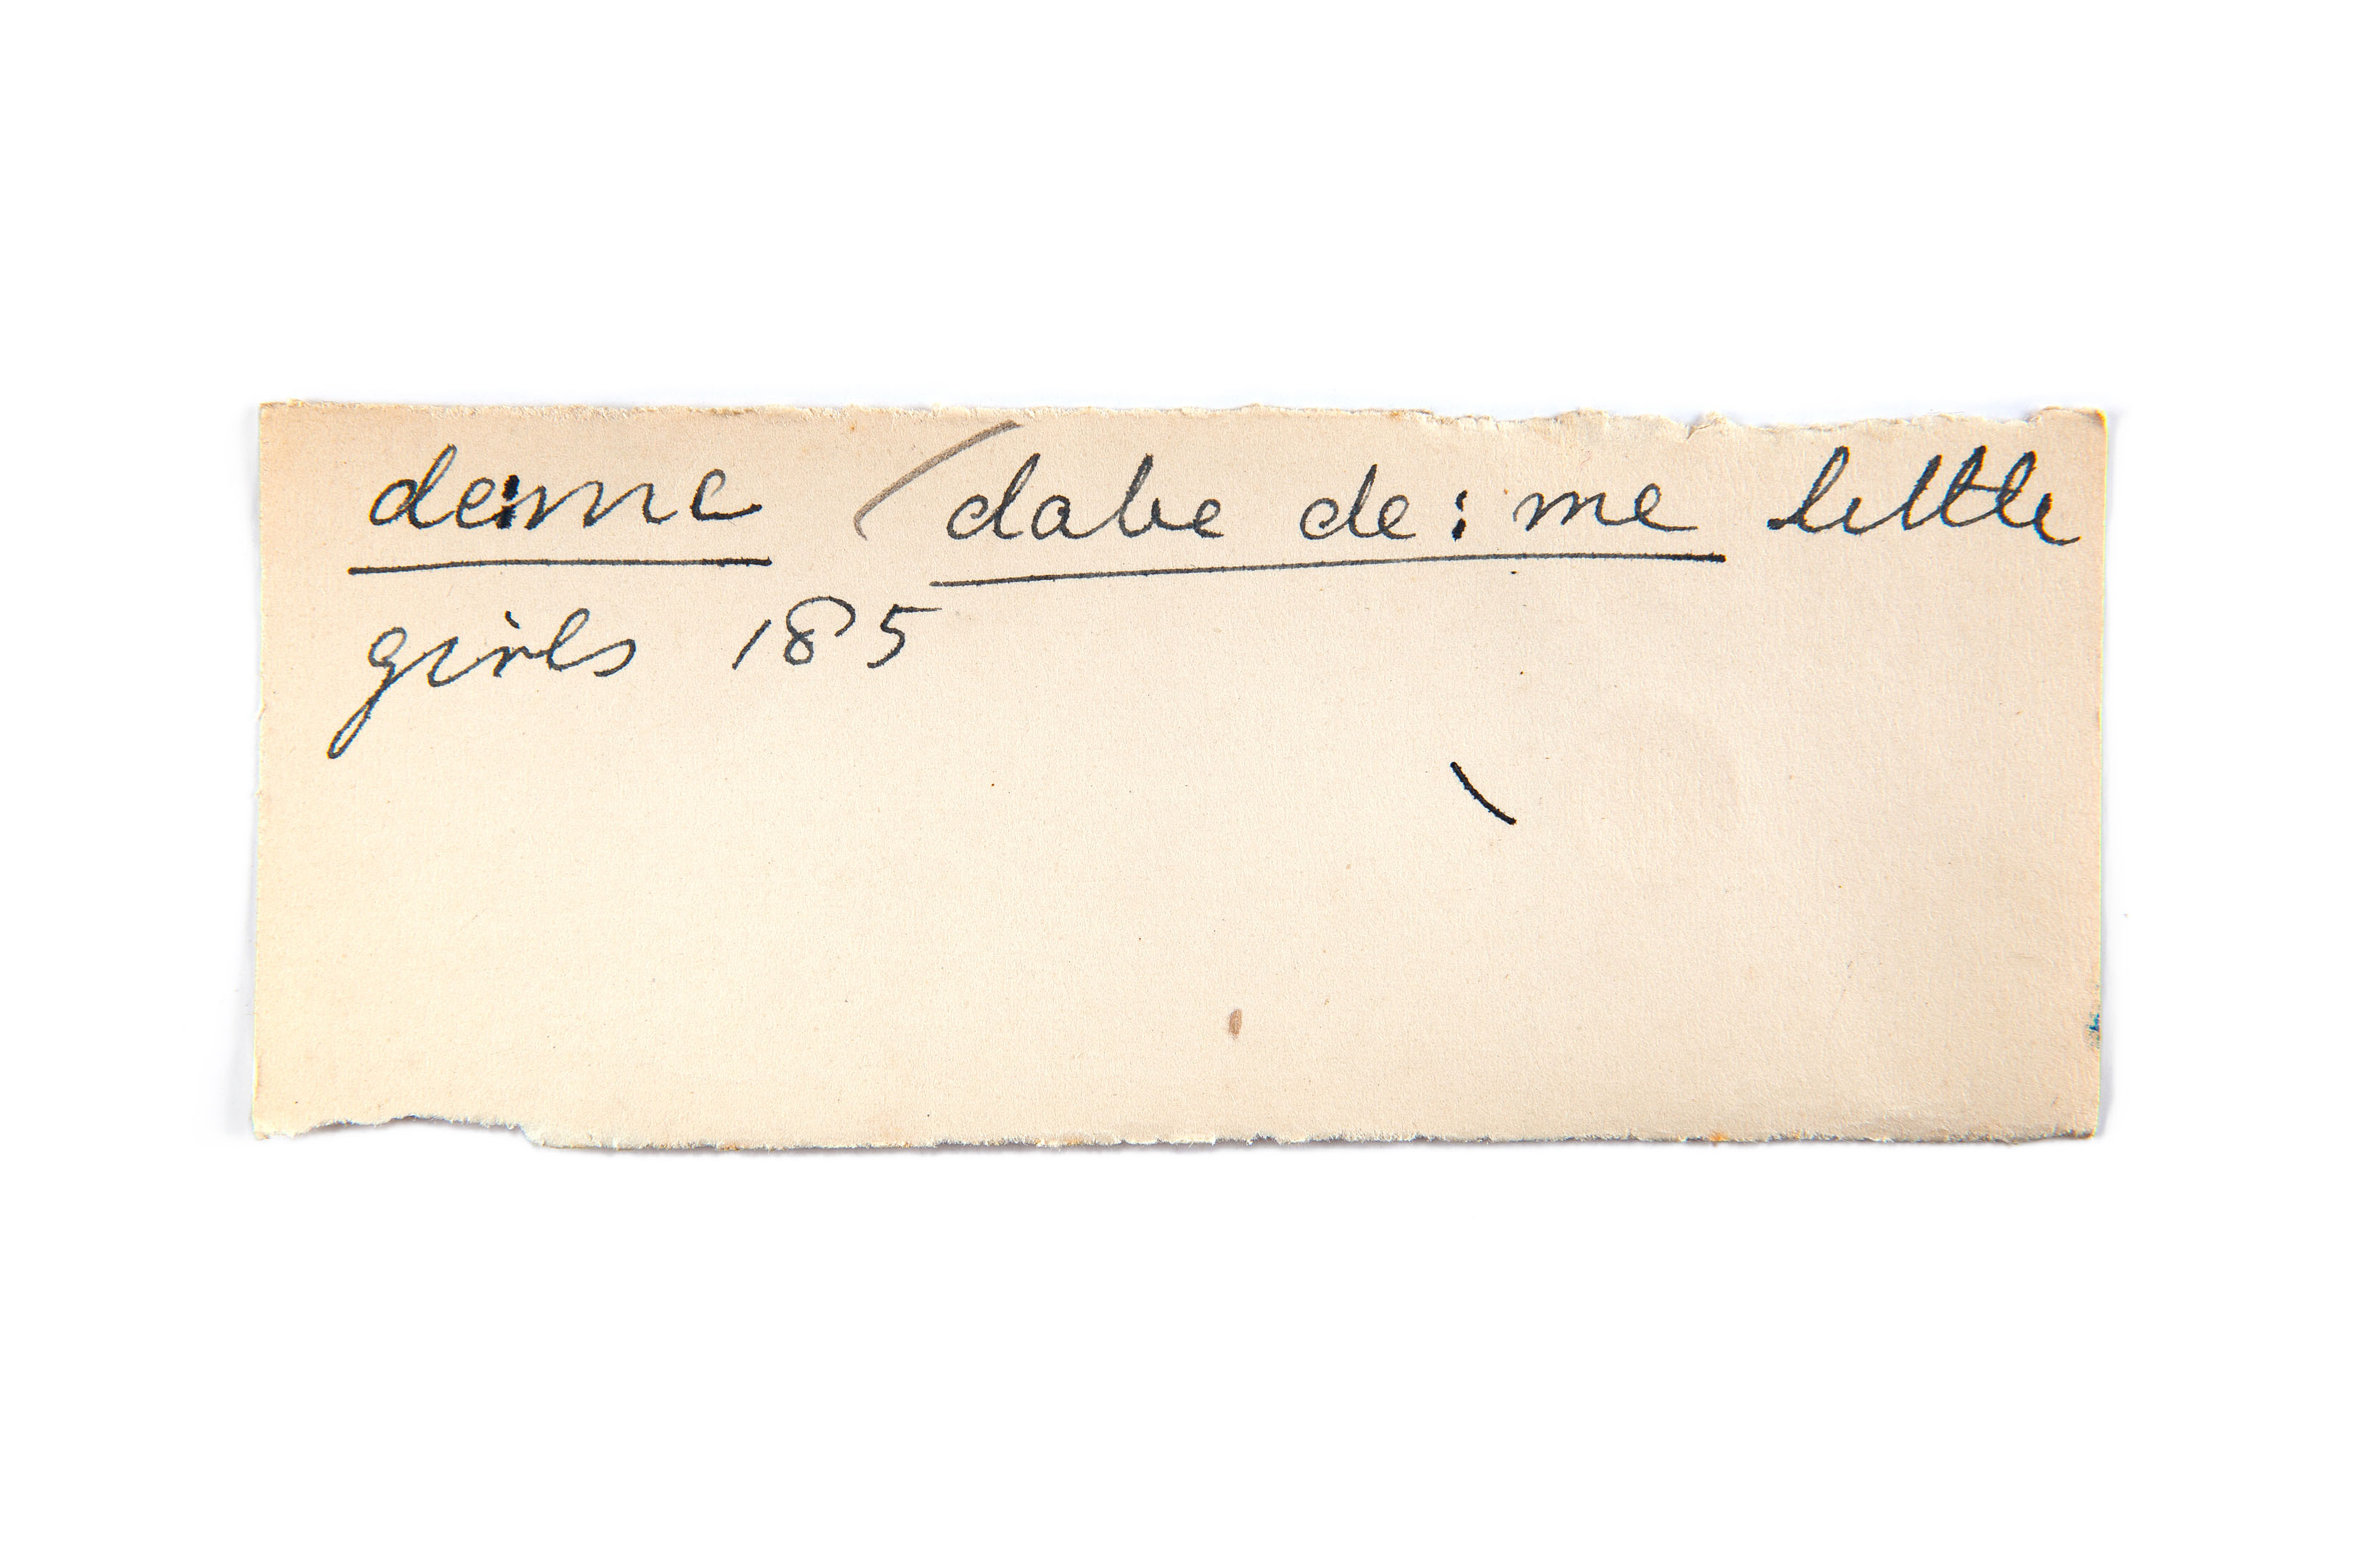 de:me (dabe de:me little
girls 185